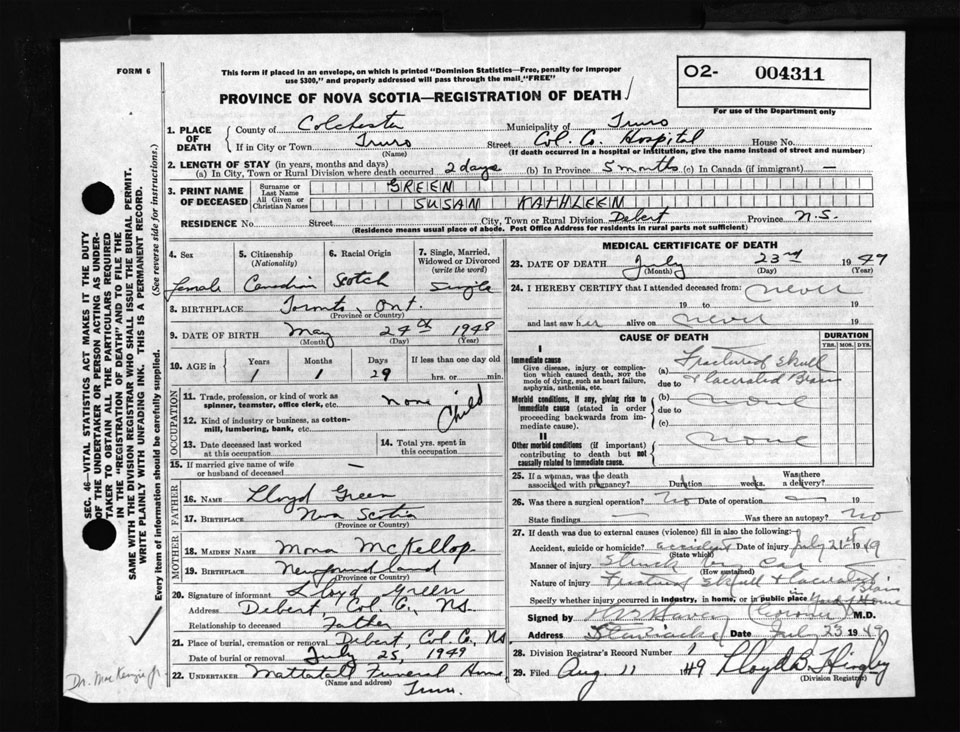 FORM 6
This form if placed in an envelope, on which is printed "Dominion Statistics—Free, penalty for improper
use $300," and properly addressed will pass through the mail "FREE"
02- 004311
For use of the Department only
PROVINCE OF NOVA SCOTIA—REGISTRATION OF DEATH
1. PLACE OF DEATH
County of Colchester Municipality of Truro
If in City or Town Truro (Name) Street Col. Co. Hospital House No.
(If death occurred in a hospital or institution, give the name instead of street and number)
2. LENGTH OF STAY (in years, months and days)
(a) In City, Town or Rural Division where death occurred 2 days (b) In Province 5 months (c) In Canada (if immigrant) —
3. PRINT NAME OF DECEASED
Surname or Last Name GREEN
All Given or Christian Names SUSAN KATHLEEN
RESIDENCE No. Street City, Town or Rural Division Debert Province N.S.
(Residence means usual place of abode. Post Office Address for residents in rural parts not sufficient)
4. Sex female
5. Citizenship (Nationality) Canadian
6. Racial Origin Scotch
7. Single, Married, Widowed or Divorced (write the word) Single
8. BIRTHPLACE Toronto, Ont.
(Province or Country)
9. DATE OF BIRTH May 24th 1948
(Month) (Day) (Year)
10. AGE in Years 1 Months 1 Days 29 If less than one day old hrs. or min.
OCCUPATION
11. Trade, profession, or kind of work as spinner, teamster, office clerk, etc. none
Child
12. Kind of industry or business, as cotton-mill, lumbering, bank, etc.
13. Date deceased last worked at this occupation
14. Total yrs. spent in this occupation
15. If married give name of wife or husband of deceased —
FATHER
16. NAME Lloyd Green
17. BIRTHPLACE Nova Scotia
(Province or Country)
MOTHER
18. MAIDEN NAME Mona McKellop
19. BIRTHPLACE Newfoundland
(Province or Country)
20. Signature of informant Lloyd Green
Address Debert, Col. Co., N.S.
Relationship to deceased Father
21. Place of burial, cremation or removal Debert, Col. Co., N.S.
Date of burial or removal July 25, 1949
22. UNDERTAKER Mattatall Funeral Home
(Name and address) Truro.
MEDICAL CERTIFICATE OF DEATH
23. DATE OF DEATH July 23rd 1949
(Month) (Day) (Year)
24. I HEREBY CERTIFY that I attended deceased from: never
19 to 19
and last saw her alive on never 19
CAUSE OF DEATH
DURATION
YRS. MOS. DYS.
I
Immediate cause
Give disease, injury or complication which caused death, NOT the mode of dying, such as heart failure, asphyxia, asthenia, etc.
(a) Fracture of Skull
due to & lacerated Brain
Morbid conditions, if any, giving rise to immediate cause (stated in order proceeding backwards from immediate cause).
(b) none
due to
(c)
II
Other morbid conditions (if important) contributing to death but not causally related to immediate cause.
none
25. If a woman, was the death associated with pregnancy? Duration weeks. Was there a delivery?
26. Was there a surgical operation? no Date of operation — 19
State findings — Was there an autopsy? no
27. If death was due to external causes (violence) fill in also the following:
Accident, suicide or homicide? accident Date of injury July 21st 1949
(State which)
Manner of injury Struck by Car
(How sustained)
Nature of injury Fracture of Skull & lacerated Brain
Specify whether injury occurred in industry, in home, or in public place
Signed by (Coroner) M.D.
Address Stewiacke Date July 23 1949
28. Division Registrar's Record Number 1
29. Filed Aug. 11 1949
(Division Registrar)
SEC. 46—VITAL STATISTICS ACT MAKES IT THE DUTY
OF THE UNDERTAKER OR PERSON ACTING AS UNDER-
TAKER TO OBTAIN ALL THE PARTICULARS REQUIRED
IN THE "REGISTRATION OF DEATH" AND TO FILE THE
SAME WITH THE DIVISION REGISTRAR WHO SHALL ISSUE THE BURIAL PERMIT.
WRITE PLAINLY WITH UNFADING INK. THIS IS A PERMANENT RECORD.
Every item of information should be carefully supplied. (See reverse side for instructions.)
Dr. MacKenzie Jr.